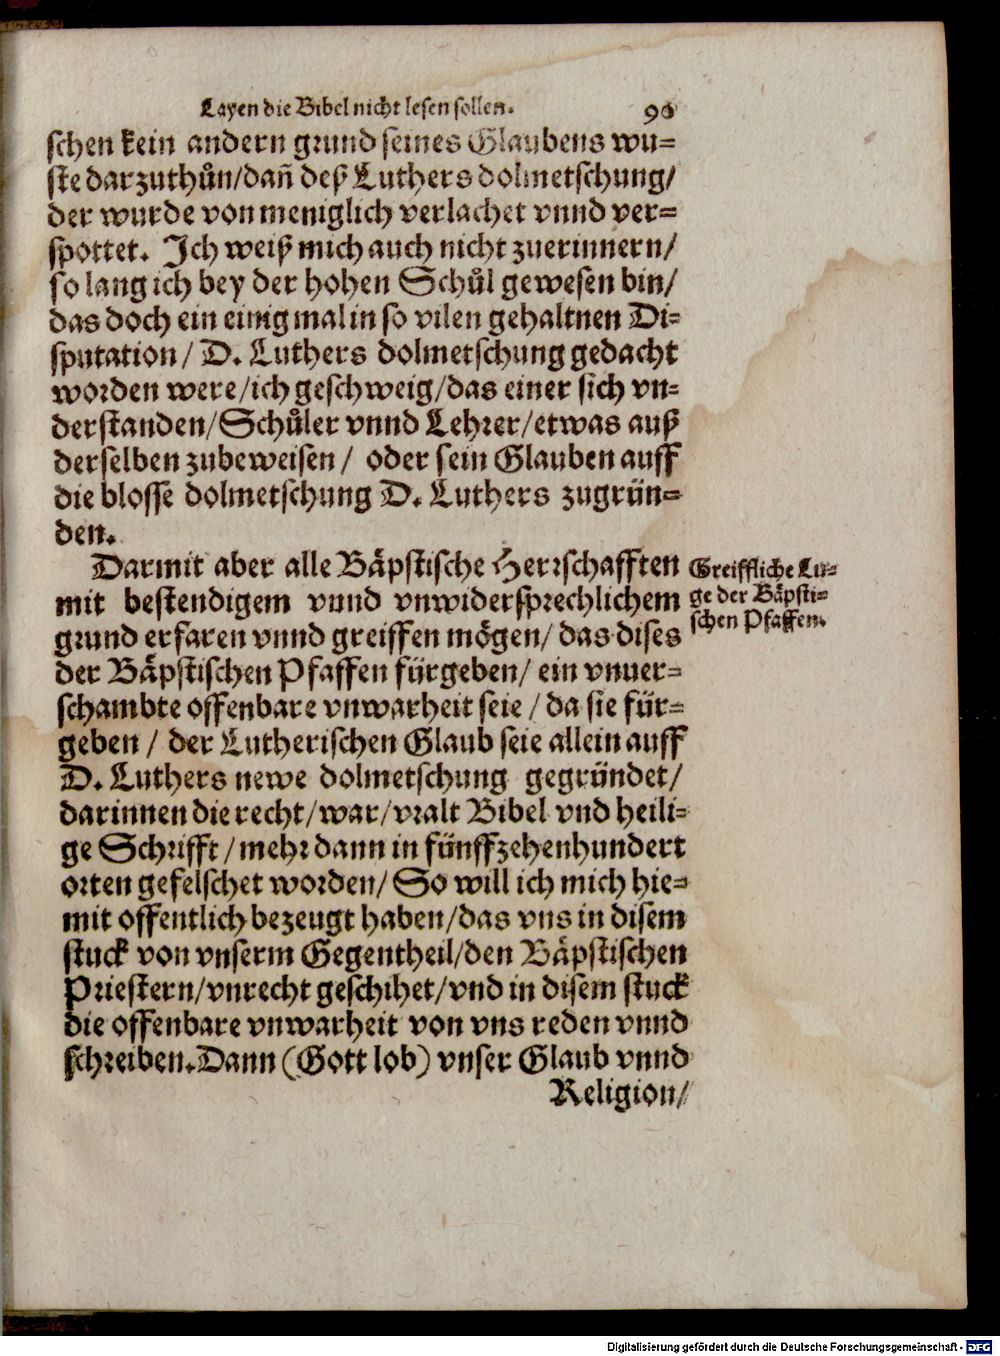 Layen die Bibel nicht lesen sollen. 90
schen kein andern grund seines Glaubens wu=
ste darzuthůn/dañ deß Luthers dolmetschung/
der wurde von meniglich verlachet vnnd ver=
spottet. Ich weiß mich auch nicht zuerinnern/
so lang ich bey der hohen Schůl gewesen bin/
das doch ein einig mal in so vilen gehaltnen Di=
sputation/ D. Luthers dolmetschung gedacht
worden were/ich geschweig/das einer sich vn=
derstanden/Schůler vnnd Lehrer/etwas auß
derselben zubeweisen/ oder sein Glauben auff
die blosse dolmetschung D. Luthers zugrün=
den.
Darmit aber alle Bäpstische Herrschafften
mit bestendigem vnnd vnwidersprechlichem
grund erfaren vnnd greiffen mögen/ das dises
der Bäpstischen Pfaffen fürgeben/ ein vnuer=
schambte offenbare vnwarheit seie / da sie für=
geben / der Lutherischen Glaub seie allein auff
D. Luthers newe dolmetschung gegründet/
darinnen die recht/war/vralt Bibel vnd heili=
ge Schrifft/mehr dann in fünffzehenhundert
orten gefelschet worden/ So will ich mich hie=
mit offentlich bezeugt haben/das vns in disem
stuck von vnserm Gegentheil/den Bäpstischen
Priestern/vnrecht geschihet/vnd in disem stuck
die offenbare vnwarheit von vns reden vnnd
schreiben.Dann (Gott lob) vnser Glaub vnnd
Religion/
Greiffliche Lu=
ge der Bäpsti=
schen Pfaffen.
Digitalisierung gefördert durch die Deutsche Forschungsgemeinschaft - DFG